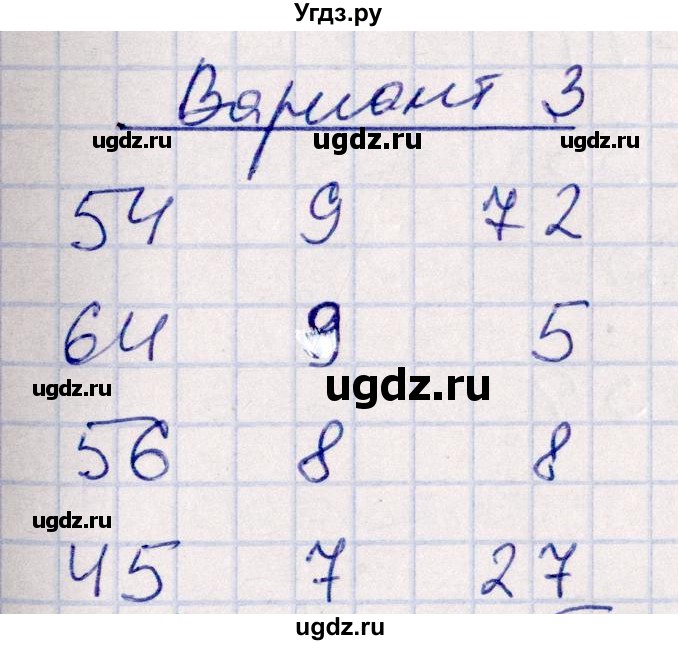 Угдз.ру
Вариант 3
ugdz.ru ugdz.ru ugdz.ru
54 9 72
64 9 5
ugdz.ru ugdz.ru
56 8 8
ugdz.ru
45 7 27
ugdz.ru